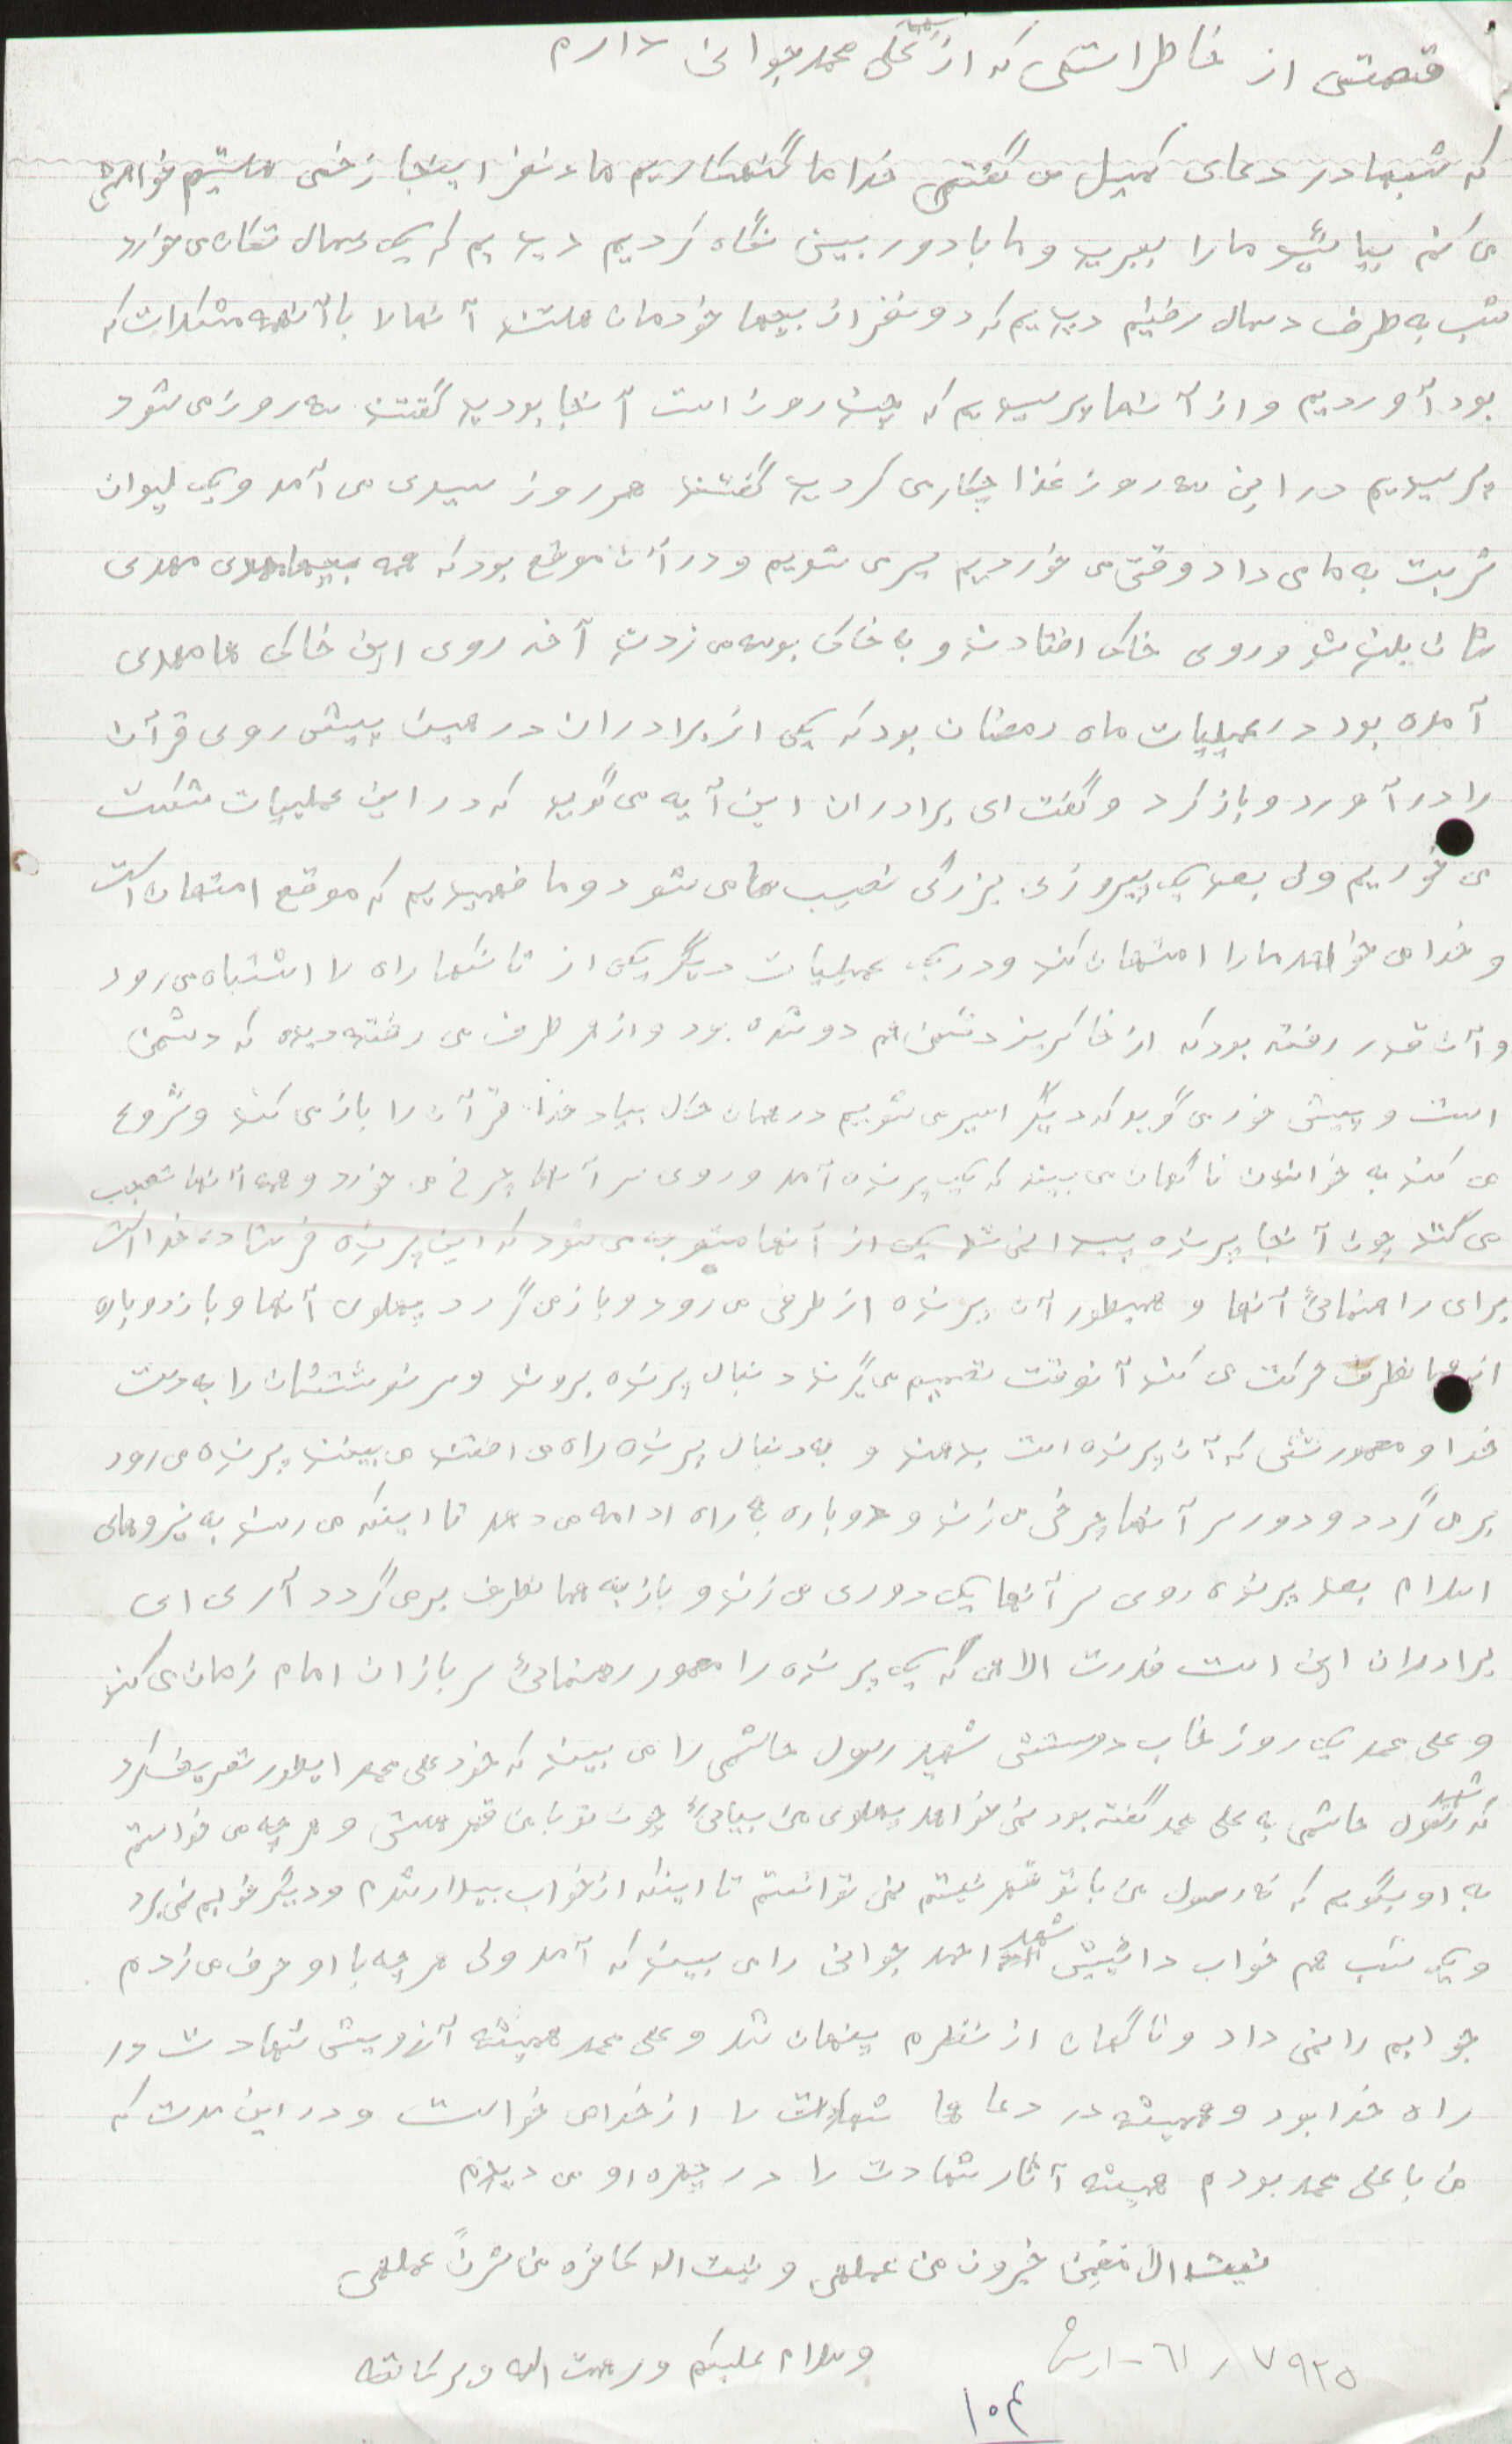 قسمتی از خاطراتی که از شهید علی محمد جوانی دارم
که شبها در دعای کمیل می گفتی خدا ما گنهکاریم ما نفر اینجا زخمی هستیم خواهش
می کنم بیائید ما را ببرید و ما با دوربین نگاه کردیم دیدیم که یک دستمال تکان می خورد
شب به طرف دستمال رفتیم دیدیم که دو نفر از بچها خودمان هستند آنها را با آنهمه مشکلات که
بود آوردیم و از آنها پرسیدیم که چند روز است آنجا بودید گفتند سه روز می شود
پرسیدیم در این سه روز غذا چکار می کردید گفتند هر روز سیدی می آمد و یک لیوان
شربت به ما می داد وقتی می خوردیم سیر می شویم و در آن موقع بود که همه بچها مهدی مهدی
شان بلند شد و روی خاک افتادند و به خاک بوسه می زدند آخر روی این خاک ها مهدی
آمده بود در عملیات ماه رمضان بود که یکی از برادران در حین پیش روی قرآن
را در آورد و باز کرد و گفت ای برادران این آیه می گوید که در این عملیات شکست
می خوریم ولی بعد یک پیروزی بزرگی نصیب ما می شود و ما فهمیدیم که موقع امتحان است
و خدا می خواهد ما را امتحان کند و در یک عملیات دیگر یکی از تانکها راه را اشتباه می رود
و آن قدر رفته بود که از خاکریز دشمن هم دو شده بود و از هر طرف می رفته دیده که دشمن
است و پیش خود می گوید که دیگر اسیر می شویم در همان حال بیاد خدا قرآن را باز می کند و شروع
می کند به خواندن ناگهان می بیند که یک پرنده آمد و روی سر آنها چرخ می خورد و همه آنها تعجب
می کنند چون آنجا پرنده پیدا نمی شد یکی از آنها متوجه می شود که این پرنده فرستاده خدا است
برای راهنمائی آنها و همینطور آن پرنده از طرفی می رود و باز می گردد پهلوی آنها و باز دوباره
از همانطرف حرکت می کند آنوقت تصمیم می گیرند دنبال پرنده بروند و سرنوشتشان را به دست
خدا و معمورش که آن پرنده است بدهند و به دنبال پرنده راه می افتند می بینند پرنده می رود
بر می گردد و دور سر آنها چرخی می زند و دوباره به راه ادامه می دهد تا اینکه می رسند به نیروهای
اسلام بعد پرنده روی سر آنها یک دوری می زند و باز به همانطرف بر می گردد آری ای
برادران این است قدرت الاهی که یک پرنده را معمور رهنمائی سربازان امام زمان می کند
و علی محمد یک روز خاب دوستش شهید رسول هاشمی را می بیند که خود علی محمد اینطور تعریف کرد
که شهید رسول هاشمی به علی محمد گفته بود نمی خواهد پهلوی من بیائی چون تو با من قهر هستی و هر چه می خواستم
به او بگویم که نه رسول من با تو قهر نیستم نمی توانستم تا اینکه از خواب بیدار شدم و دیگر خوابم نمی برد
و یک شب هم خواب دائیش شهید احمد جوانی را می بیند که آمد ولی هر چه با او حرف می زدم
جوابم را نمی داد و ناگهان از نظرم پنهان شد و علی محمد همیشه آرزویش شهادت در
راه خدا بود و همیشه در دعا ها شهادت را از خدا می خواست و در این مدت که
من با علی محمد بودم همیشه آثار شهادت را در چهره او می دیدم
نیت المؤمن خیرون من عملهی و نیت الکافره من شرن عملهی
وسلام علیکم و رحمت الله و برکاته
۱۰۴